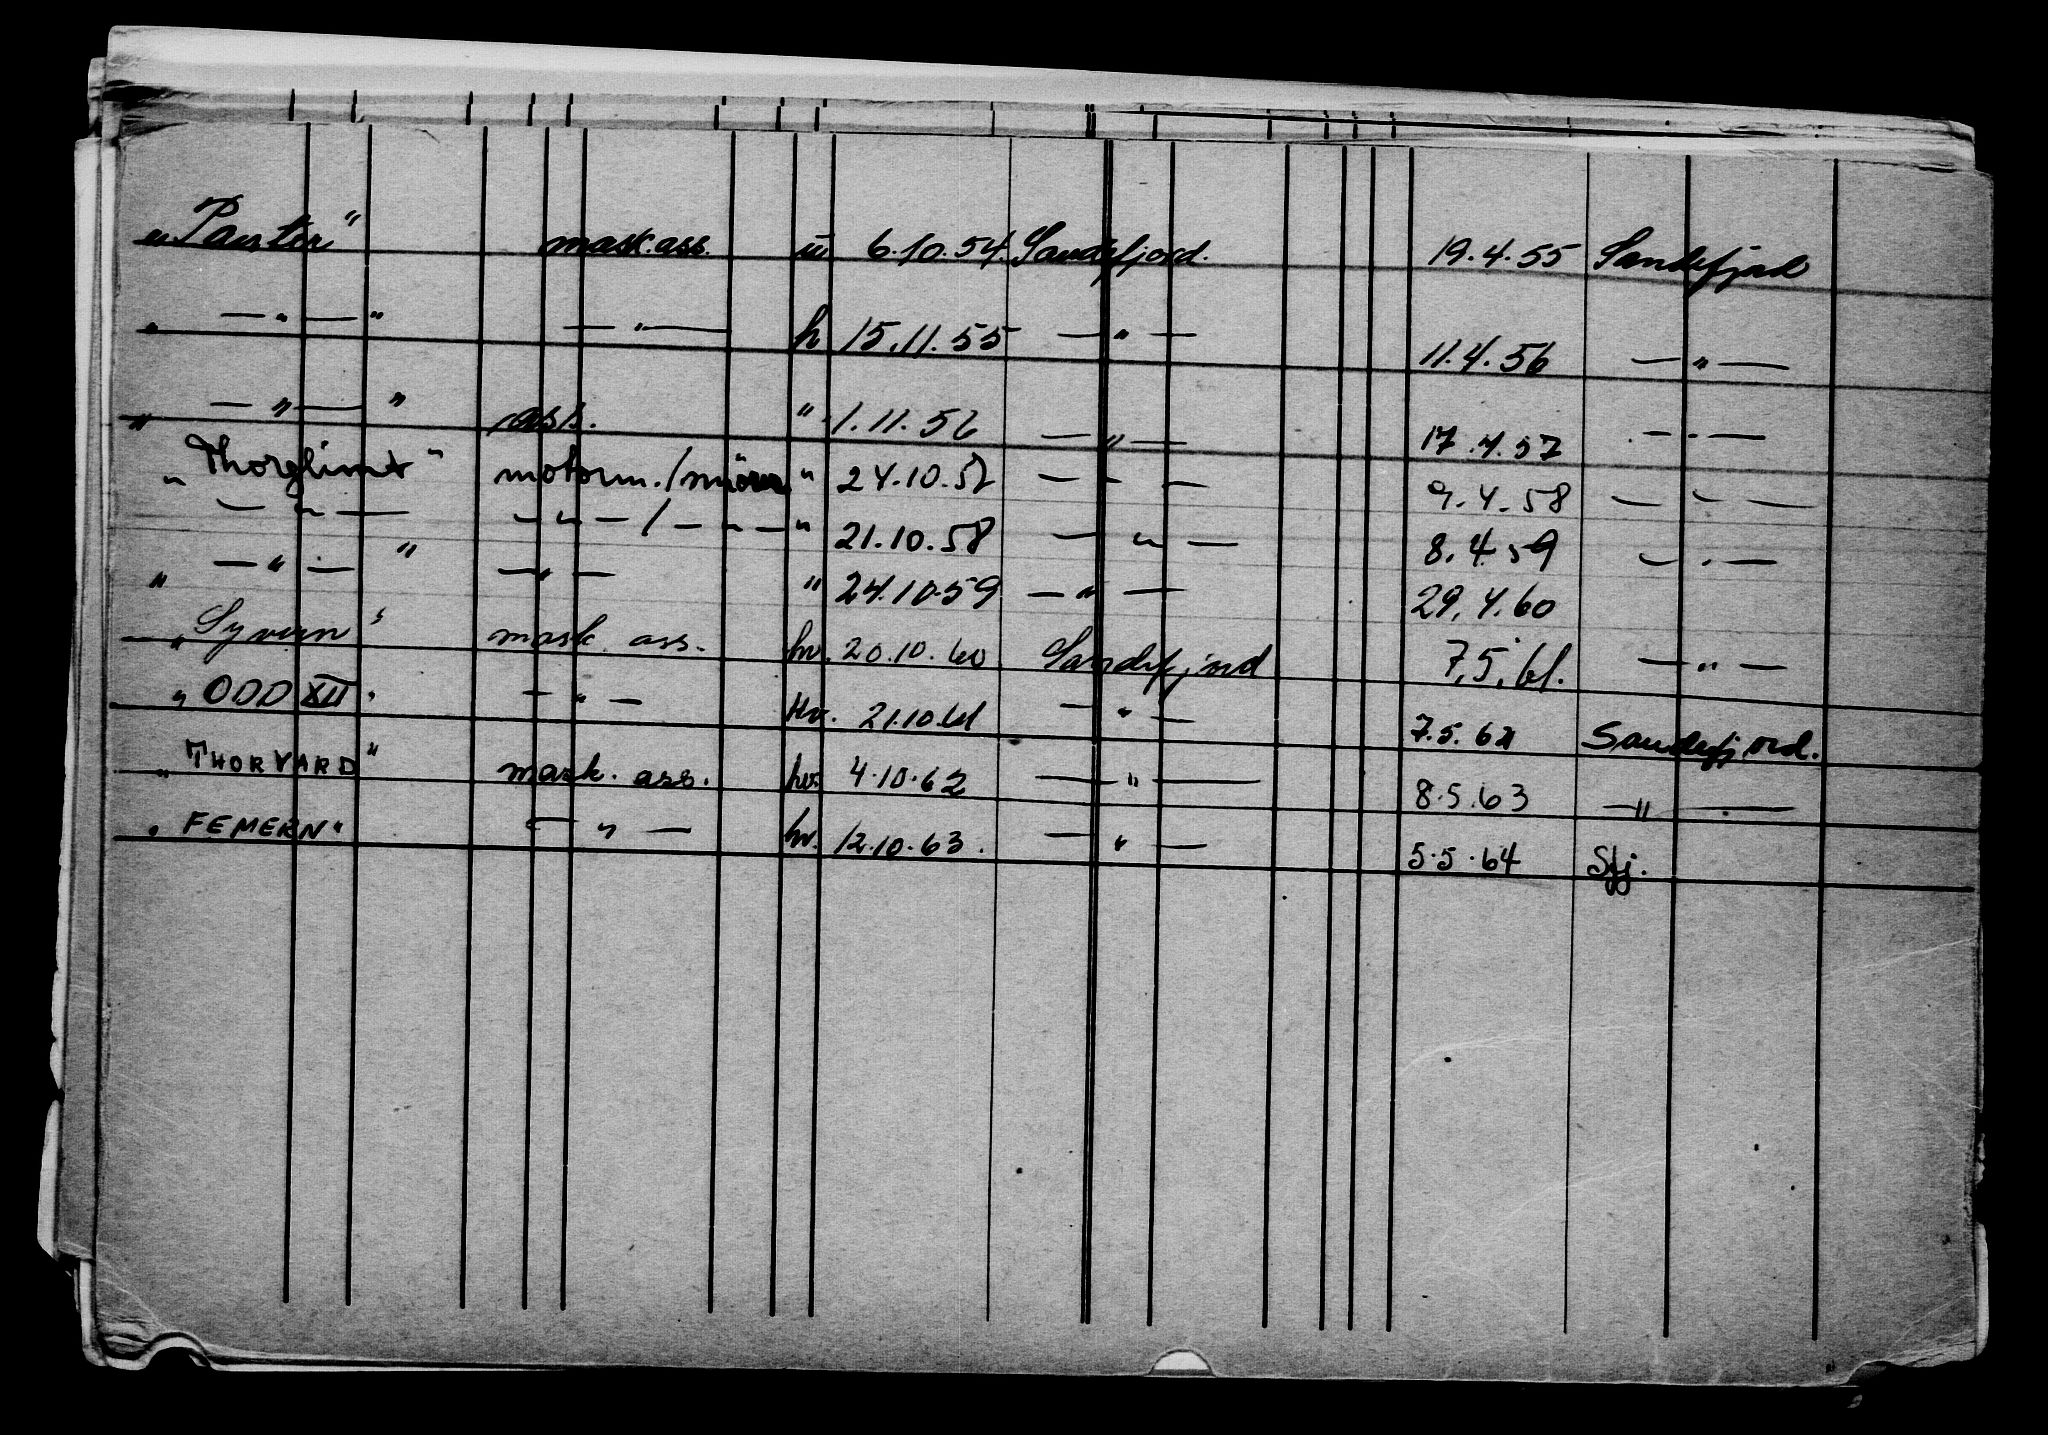 „Panter" mask.ass. u 6.10.54. Sandefjord. 19.4.55 Sandefjord
„ — " — " — " — h 15.11.55 — " — 11.4.56 — " —
„ — " — " ass. " 1.11.56 — " — 17.4.57 — " —
„Thorglimt" motorm./ " 24.10.57 — " — 9.4.58 — " —
— " — — " — / — " — " 21.10.58 — " — 8.4.59 — " —
„ — " — " — " — " 24.10.59 — " — 29.4.60
„Syvern" mask. ass. hv. 20.10.60 Sandefjord 7.5.61. — " —
„ODD XII" — " — Hv. 21.10.61 — " — 7.5.62 Sandefjord.
„THORVARD" mask. ass. hv. 4.10.62 — " — 8.5.63 — " —
„FEMERN" — " — hv. 12.10.63. — " — 5.5.64 Sfj.